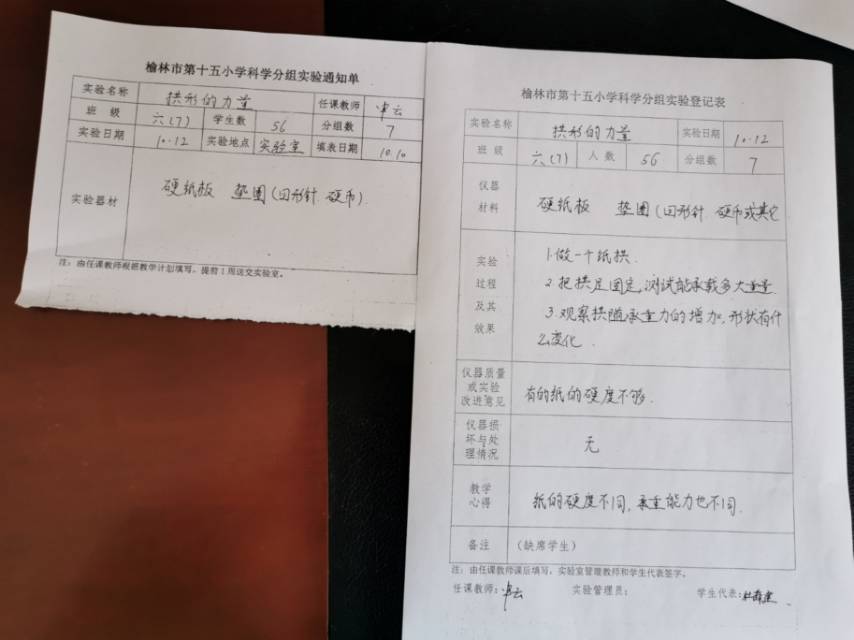 榆林市第十五小学科学分组实验通知单
实验名称 拱形的力量 任课教师 申云
班 级 六(7) 学生数 56 分组数 7
实验日期 10.12 实验地点 实验室 填表日期 10.10
实验器材 硬纸板 垫圈(回形针 硬币).
注:由任课教师根据教学计划填写,提前1周送交实验室。
榆林市第十五小学科学分组实验登记表
实验名称 拱形的力量 实验日期 10.12
班 级 六(7) 人 数 56 分组数 7
仪器
材料
硬纸板 垫圈(回形针 硬币或其它
实验
过程
及其
效果
1.做一个纸拱.
2.把拱足固定,测试能承载多大重量
3.观察拱随承重力的增加,形状有什
么变化.
仪器质量
或实验
改进意见
有的纸的硬度不够.
仪器损
坏与处
理情况
无
教学
心得
纸的硬度不同,承重能力也不同.
备注 (缺席学生)
注:由任课教师课后填写,实验室管理教师和学生代表签字。
任课教师:申云 实验管理员: 学生代表: